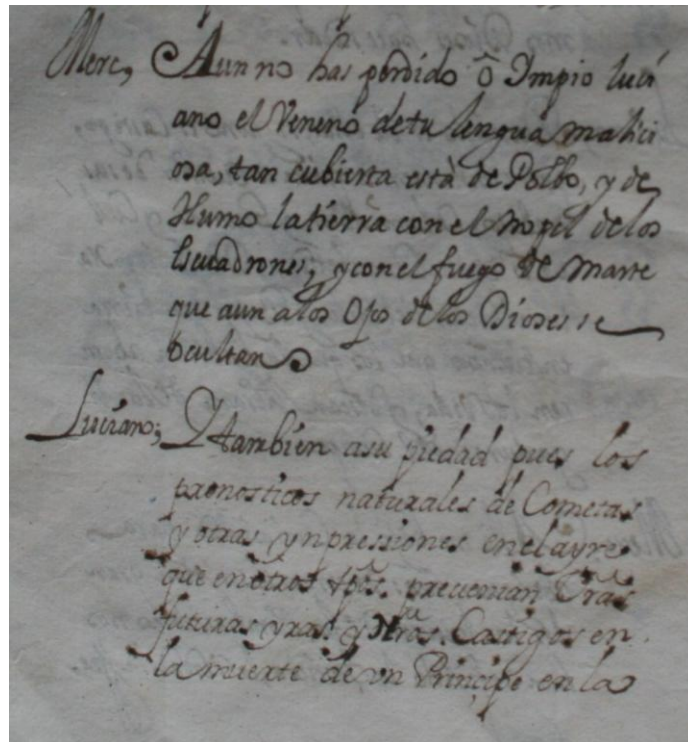 Merc, Aun no has perdido ô Impio luci
ano el Veneno de tu lengua malici
osa, tan cubierta està de Polbo, y de
Humo la tierra con el tropel de los
Escuadrones, y con el fuego de Marte
que aun a los Ojos de los Dioses se
ocultan
Luciano; Y tambien a su piedad pues los
pronosticos naturales de Cometas
y otras ynpressiones en el ayre
que en otros tpõs. preuenian Vrãs
futuras yras y Nrõs. Castigos en
la muerte de vn Principe en la